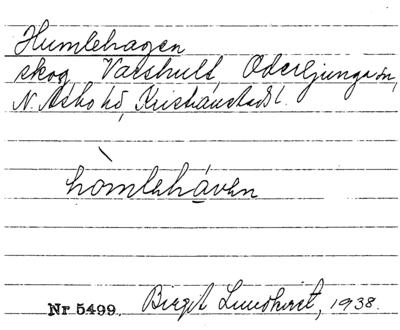 Humlehagen
skog, Varshult, Oderljunga sn,
N. Åsbo hd, Kristianstads l.
hòmlehávεn
Nr 5499. Birgit Lundkvist, 1938.